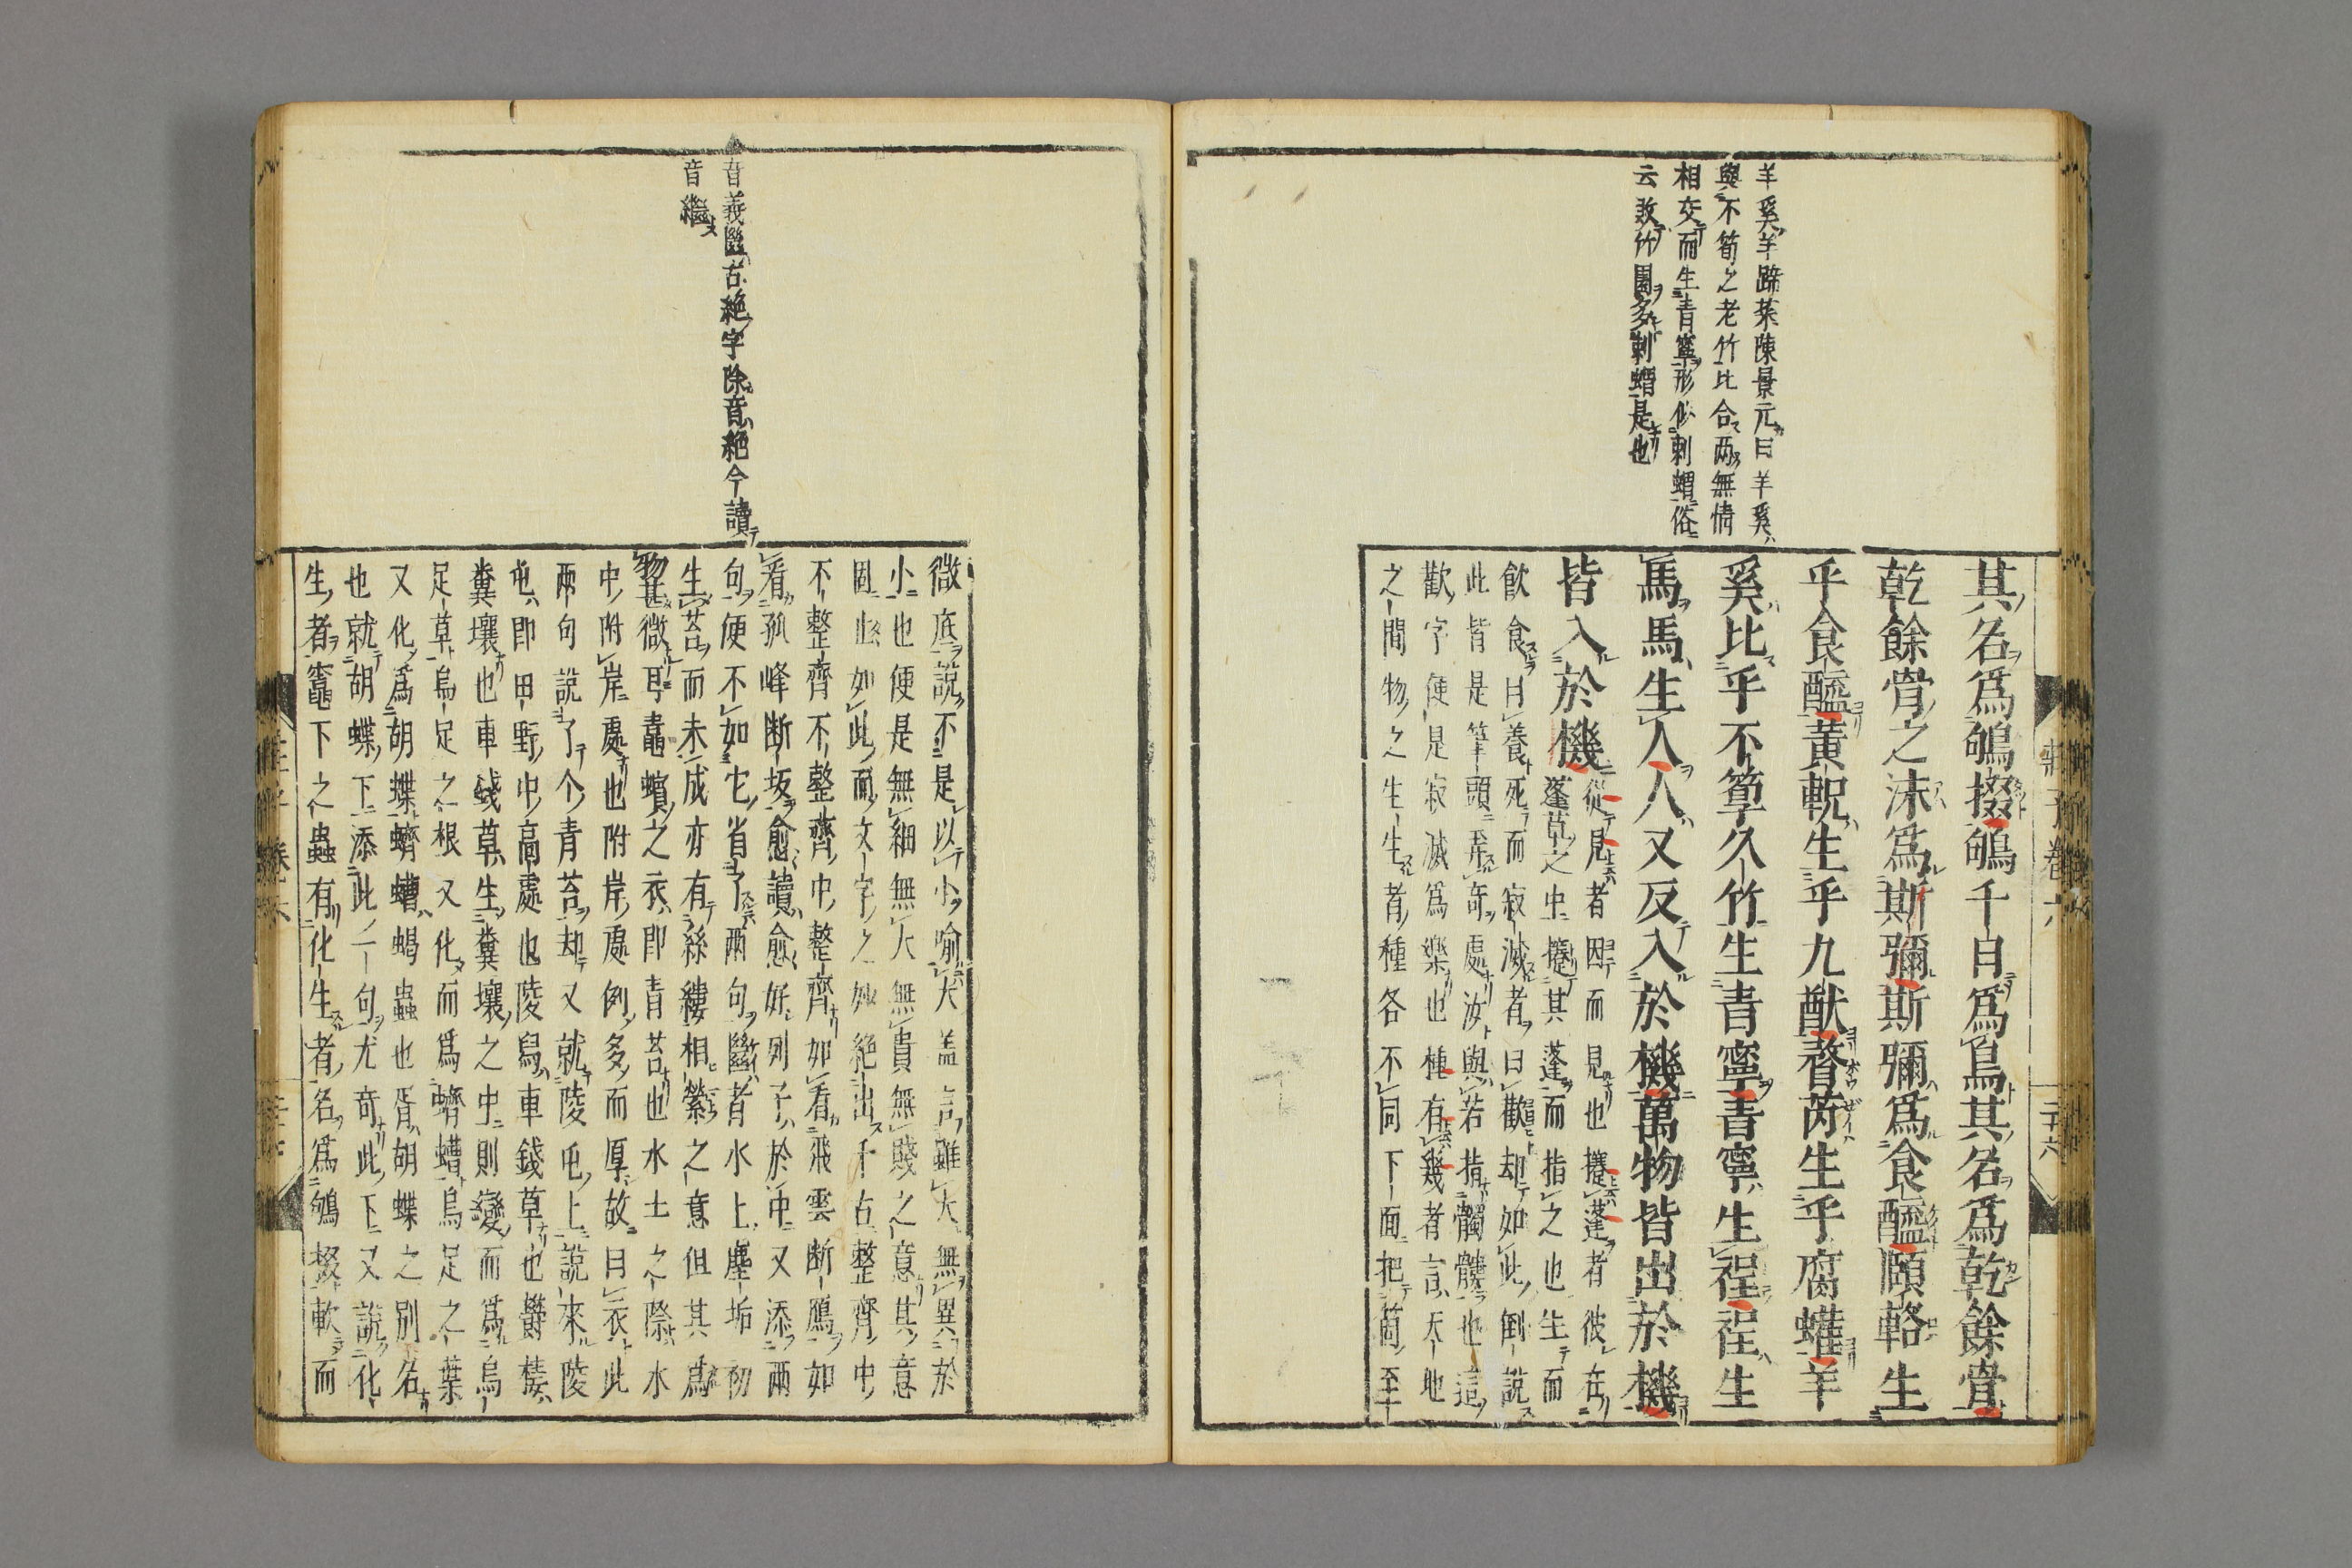 羊奚羊蹄菜陳景元曰羊奚
與不筍之老竹比合两無情
相交而生青寧形似刺蝟俗
云敗竹園多刺蝟是也
其名爲鴝掇鴝千日爲鳥其名爲乾餘骨
乾餘骨之沫爲斯彌斯彌爲食醯頤輅生
乎食醯黃軦生乎九猷瞀芮生乎腐蠸羊
奚比乎不箰久竹生青寧青寧生程程生
馬馬生人人又反入於機萬物皆出於機
皆入於機
從見者因而見也攓蓬者彼在
蓬草之中攓其蓬而指之也生而
飲食曰養死而寂滅者曰歡却如此倒說
此皆是筆頭弄奇處汝與若指髑髏也這
歡字便是寂滅爲樂也種有幾者言天地
之間物之生生者種各不同下面把箇至
莊子卷六
二十六
音義㡭古絶字除音絶今讀
音繼
微底說不是以小喻大盖言雖大無異於
小也便是無細無大無貴無賤之意其意
固如此而文字之妙絶出千古整齊中
不整齊不整齊中整齊如看飛雲断鴈如
看孤峰断坂愈讀愈好列子於中又添兩
句便不如它省了兩句㡭者水上塵垢初
生苔而未成亦有絲縷相縈之意但其爲
物甚微耳鼃蠙之衣即青苔也水土之際水
中附岸處也附岸處例多而厚故曰衣此
兩句說了个青苔却又就陵屯上說來陵
屯即田野中高處也陵舃車錢草也鬱棲
糞壤也車錢草生糞壤之中則變而爲烏
足草烏足之根又化而爲蠐螬烏足之葉
又化爲胡蝶蠐螬蝎蟲也胥胡蝶之別名
也就胡蝶下添此一句尤奇此下又說化
生者竈下之蟲有化生者名爲鴝掇軟而